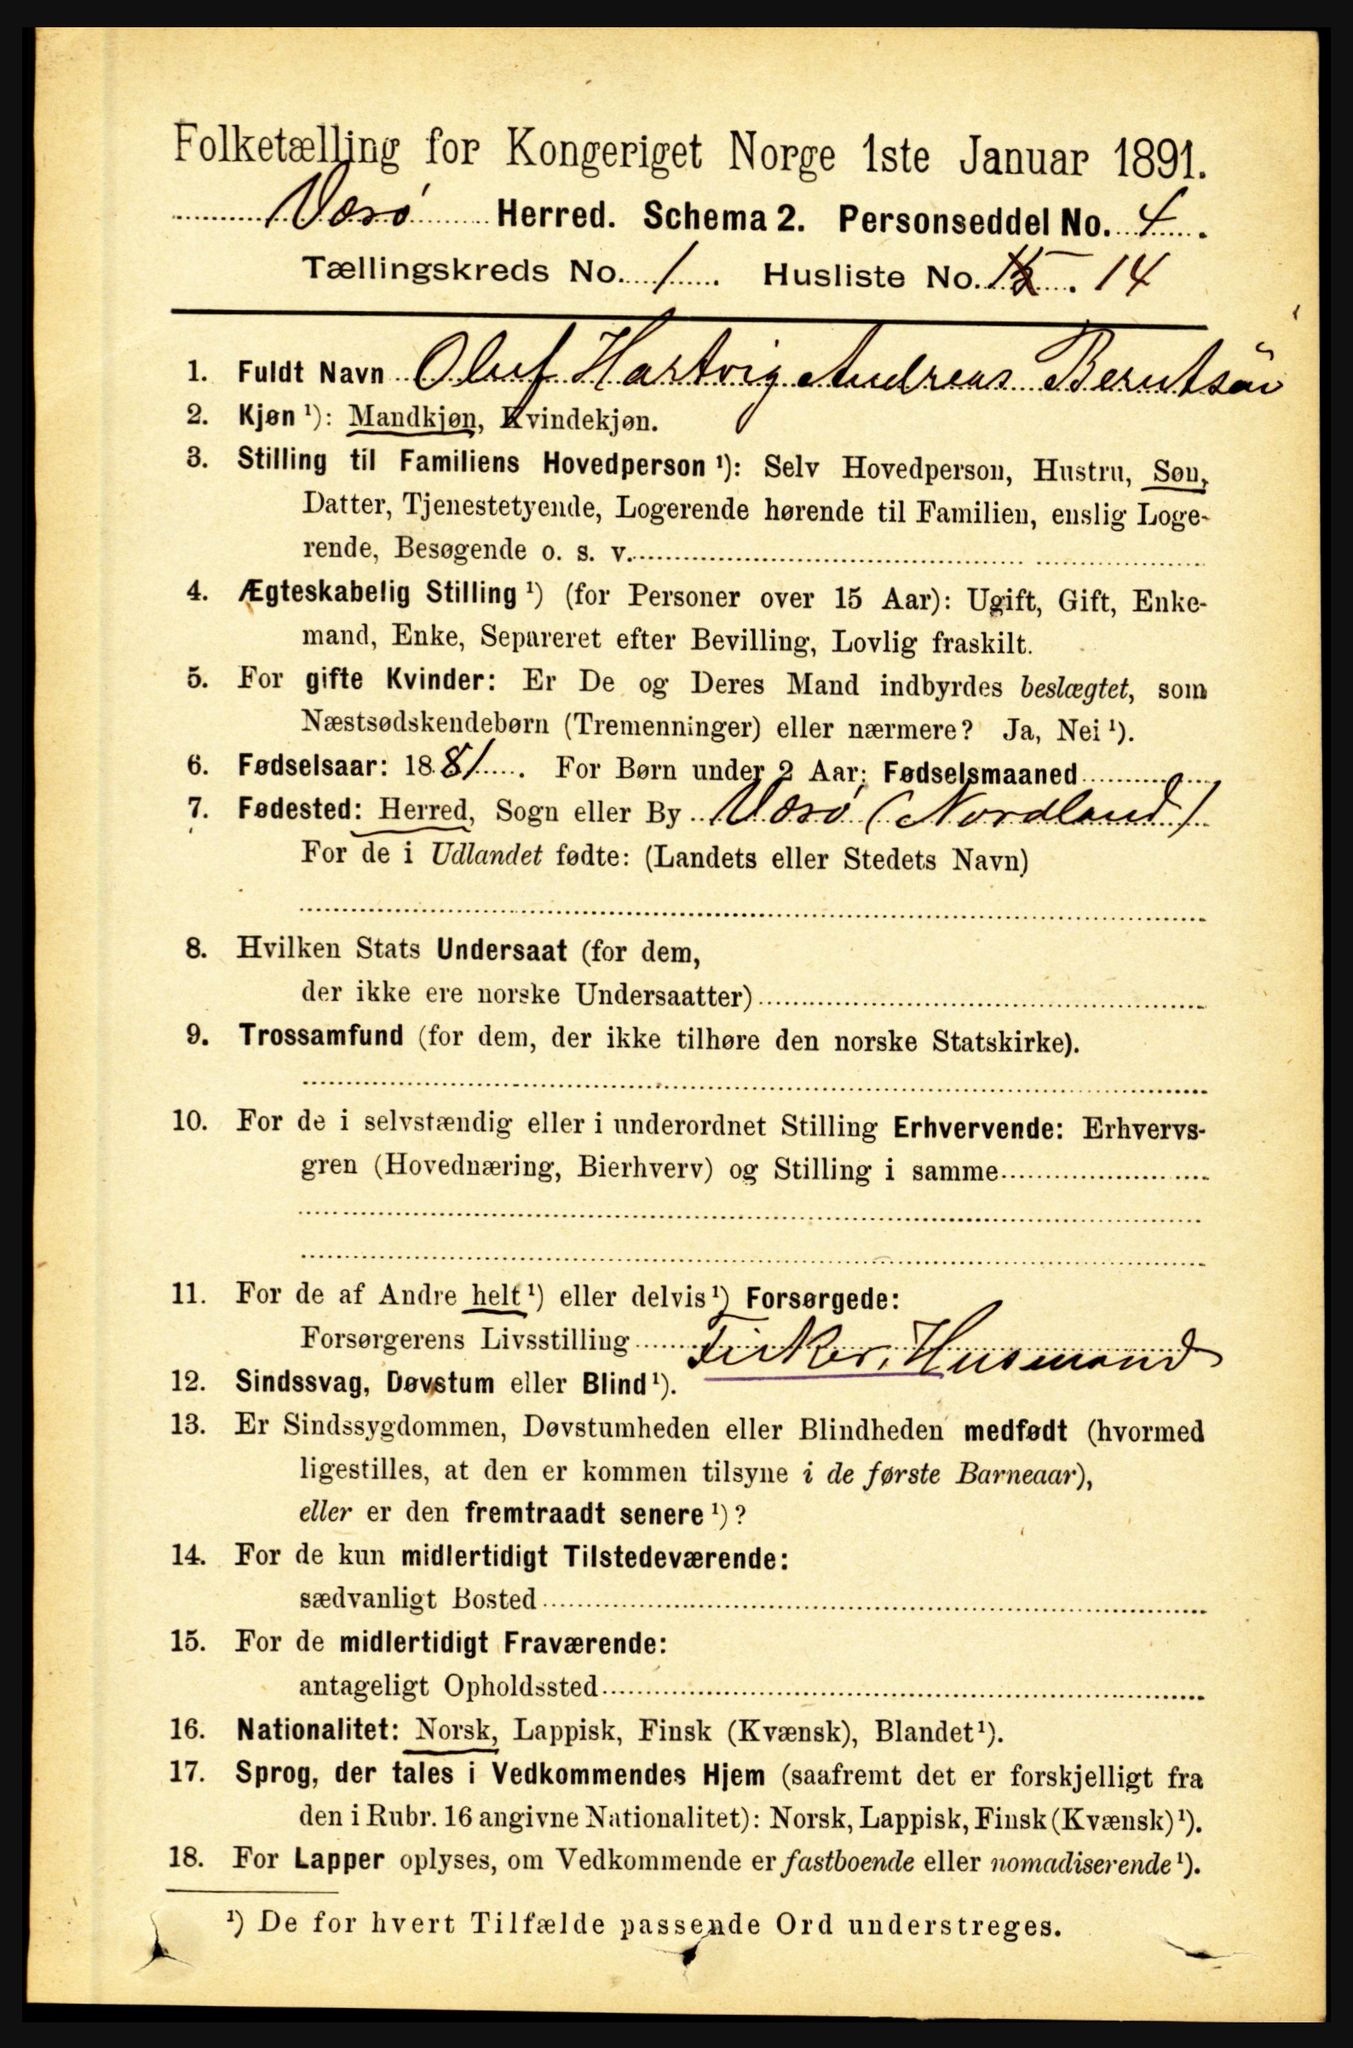 Folketælling for Kongeriget Norge 1ste Januar 1891.
Værø Herred. Schema 2. Personseddel No. 4.
Tællingskreds No. 1. Husliste No. 15. 14
1. Fuldt Navn Oluf Hartvig Andreas Berntsön
2. Kjøn ¹): Mandkjøn, Kvindekjøn.
3. Stilling til Familiens Hovedperson ¹): Selv Hovedperson, Hustru, Søn,
Datter, Tjenestetyende, Logerende hørende til Familien, enslig Loge-
rende, Besøgende o. s. v.
4. Ægteskabelig Stilling ¹) (for Personer over 15 Aar): Ugift, Gift, Enke-
mand, Enke, Separeret efter Bevilling, Lovlig fraskilt.
5. For gifte Kvinder: Er De og Deres Mand indbyrdes beslægtet, som
Næstsødskendebørn (Tremenninger) eller nærmere? Ja, Nei ¹).
6. Fødselsaar: 1881. For Børn under 2 Aar: Fødselsmaaned
7. Fødested: Herred, Sogn eller By Værø (Nordland)
For de i Udlandet fødte: (Landets eller Stedets Navn)
8. Hvilken Stats Undersaat (for dem,
der ikke ere norske Undersaatter)
9. Trossamfund (for dem, der ikke tilhøre den norske Statskirke).
10. For de i selvstændig eller i underordnet Stilling Erhvervende: Erhvervs-
gren (Hovednæring, Bierhverv) og Stilling i samme
11. For de af Andre helt ¹) eller delvis ¹) Forsørgede:
Forsørgerens Livsstilling Fisker, Husmand
12. Sindssvag, Døvstum eller Blind ¹).
13. Er Sindssygdommen, Døvstumheden eller Blindheden medfødt (hvormed
ligestilles, at den er kommen tilsyne i de første Barneaar),
eller er den fremtraadt senere ¹)?
14. For de kun midlertidigt Tilstedeværende:
sædvanligt Bosted
15. For de midlertidigt Fraværende:
antageligt Opholdssted
16. Nationalitet: Norsk, Lappisk, Finsk (Kvænsk), Blandet ¹).
17. Sprog, der tales i Vedkommendes Hjem (saafremt det er forskjelligt fra
den i Rubr. 16 angivne Nationalitet): Norsk, Lappisk, Finsk (Kvænsk) ¹).
18. For Lapper oplyses, om Vedkommende er fastboende eller nomadiserende ¹).
¹) De for hvert Tilfælde passende Ord understreges.